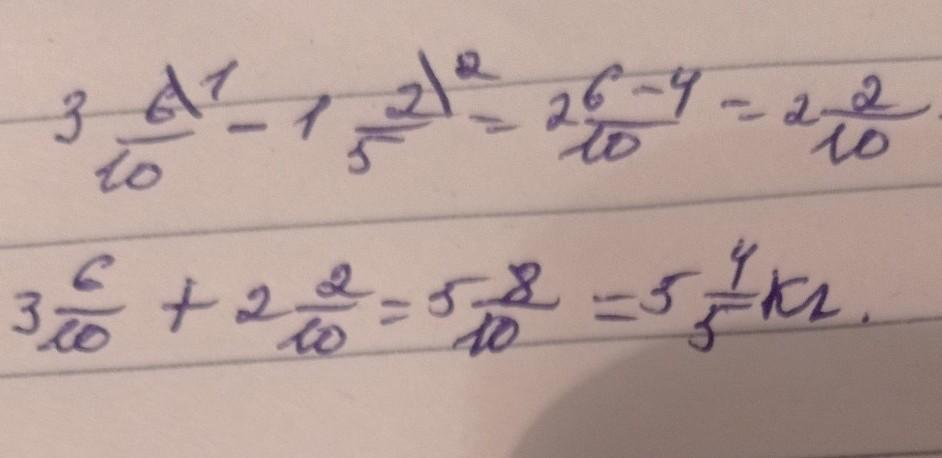 3 6\1/10 - 1 2\2/5 = 2 6-4/10 = 2 2/10
3 6/10 + 2 2/10 = 5 8/10 = 5 4/5 кг.